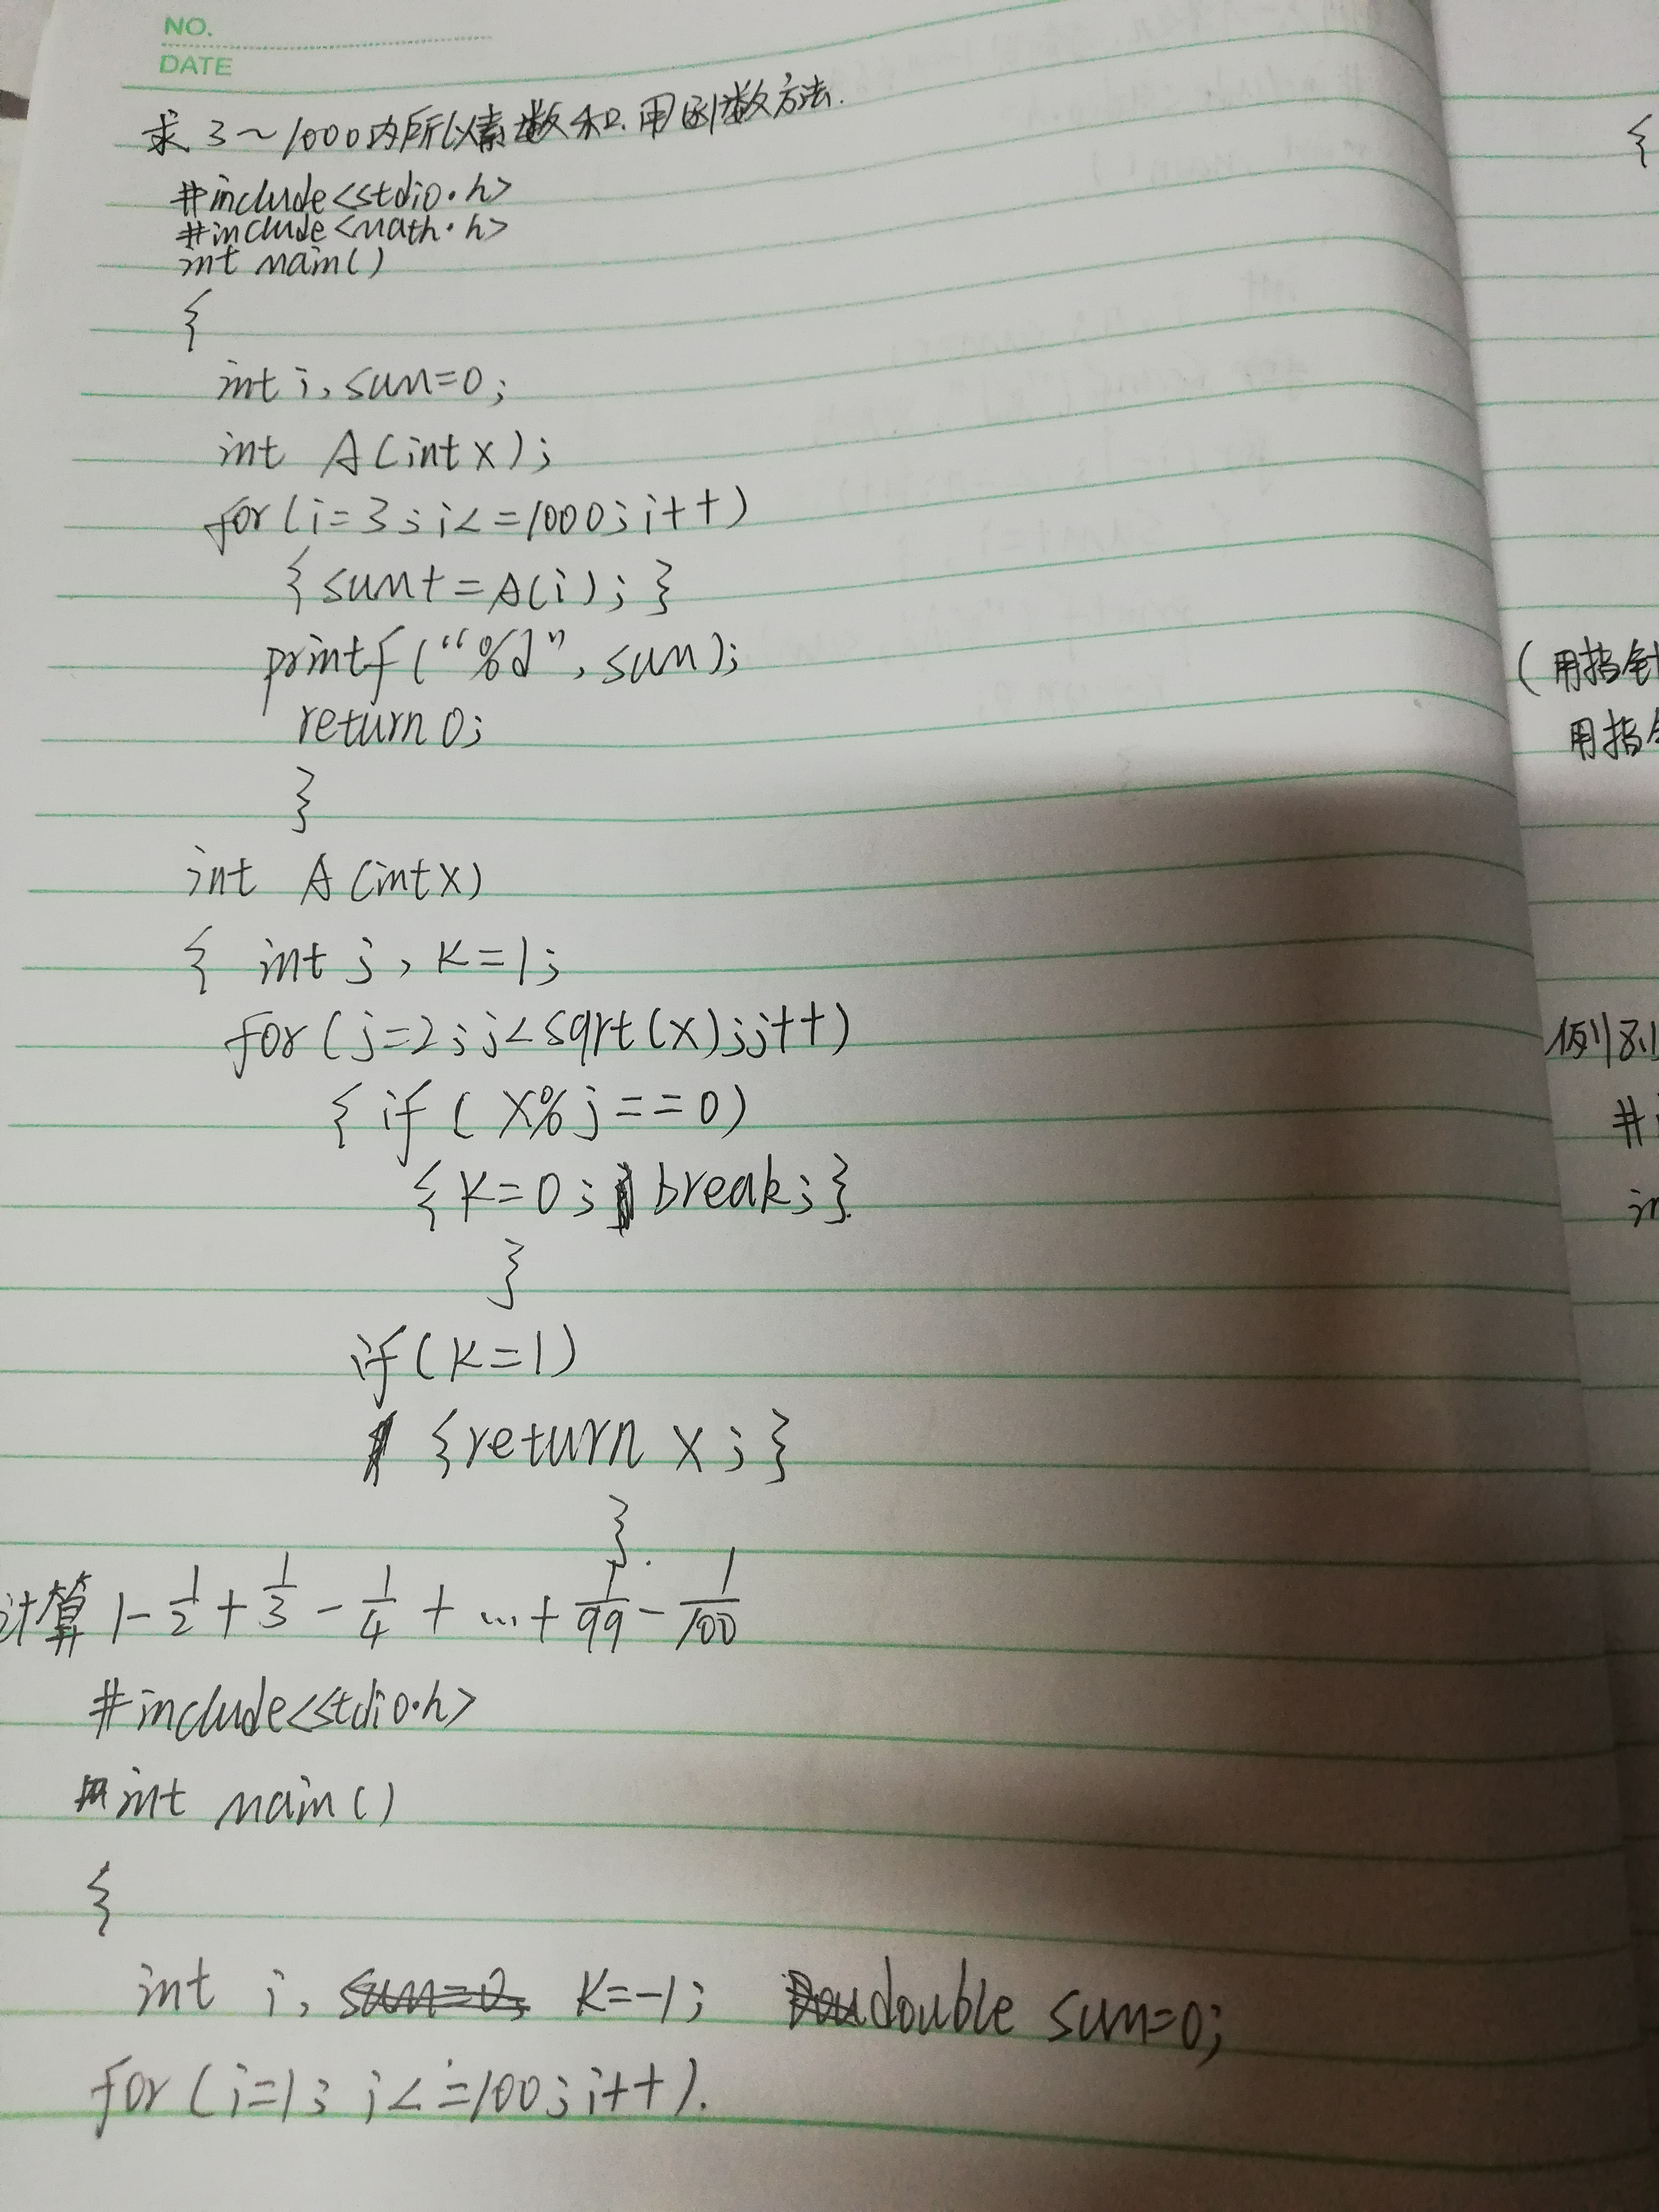 NO.
DATE
求 3~1000内所以素数和.用函数方法.
#include<stdio.h>
#include<math.h>
int main()
{
int i, sum=0;
int A(int x);
for(i=3;i<=1000;i++)
{sum+=A(i);}
printf("%d",sum);
return 0;
}
int A(int x)
{ int j, k=1;
for(j=2;j<sqrt(x);j++)
{if(x%j==0)
{k=0; break;}
}
if(k=1)
{return x;}
}.
计算 1-1/2+1/3-1/4+...+1/99-1/100
#include<stdio.h>
int main()
{
int i, sum=0; k=-1; double sum=0;
for(i=1; i<=100;i++).
{
(用指针
用指
例8.1
#